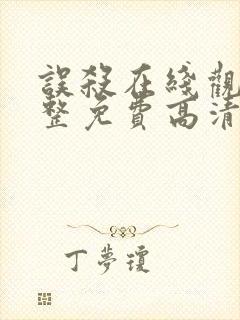 誤殺在綫觀
整免費高清
丁夢瓊